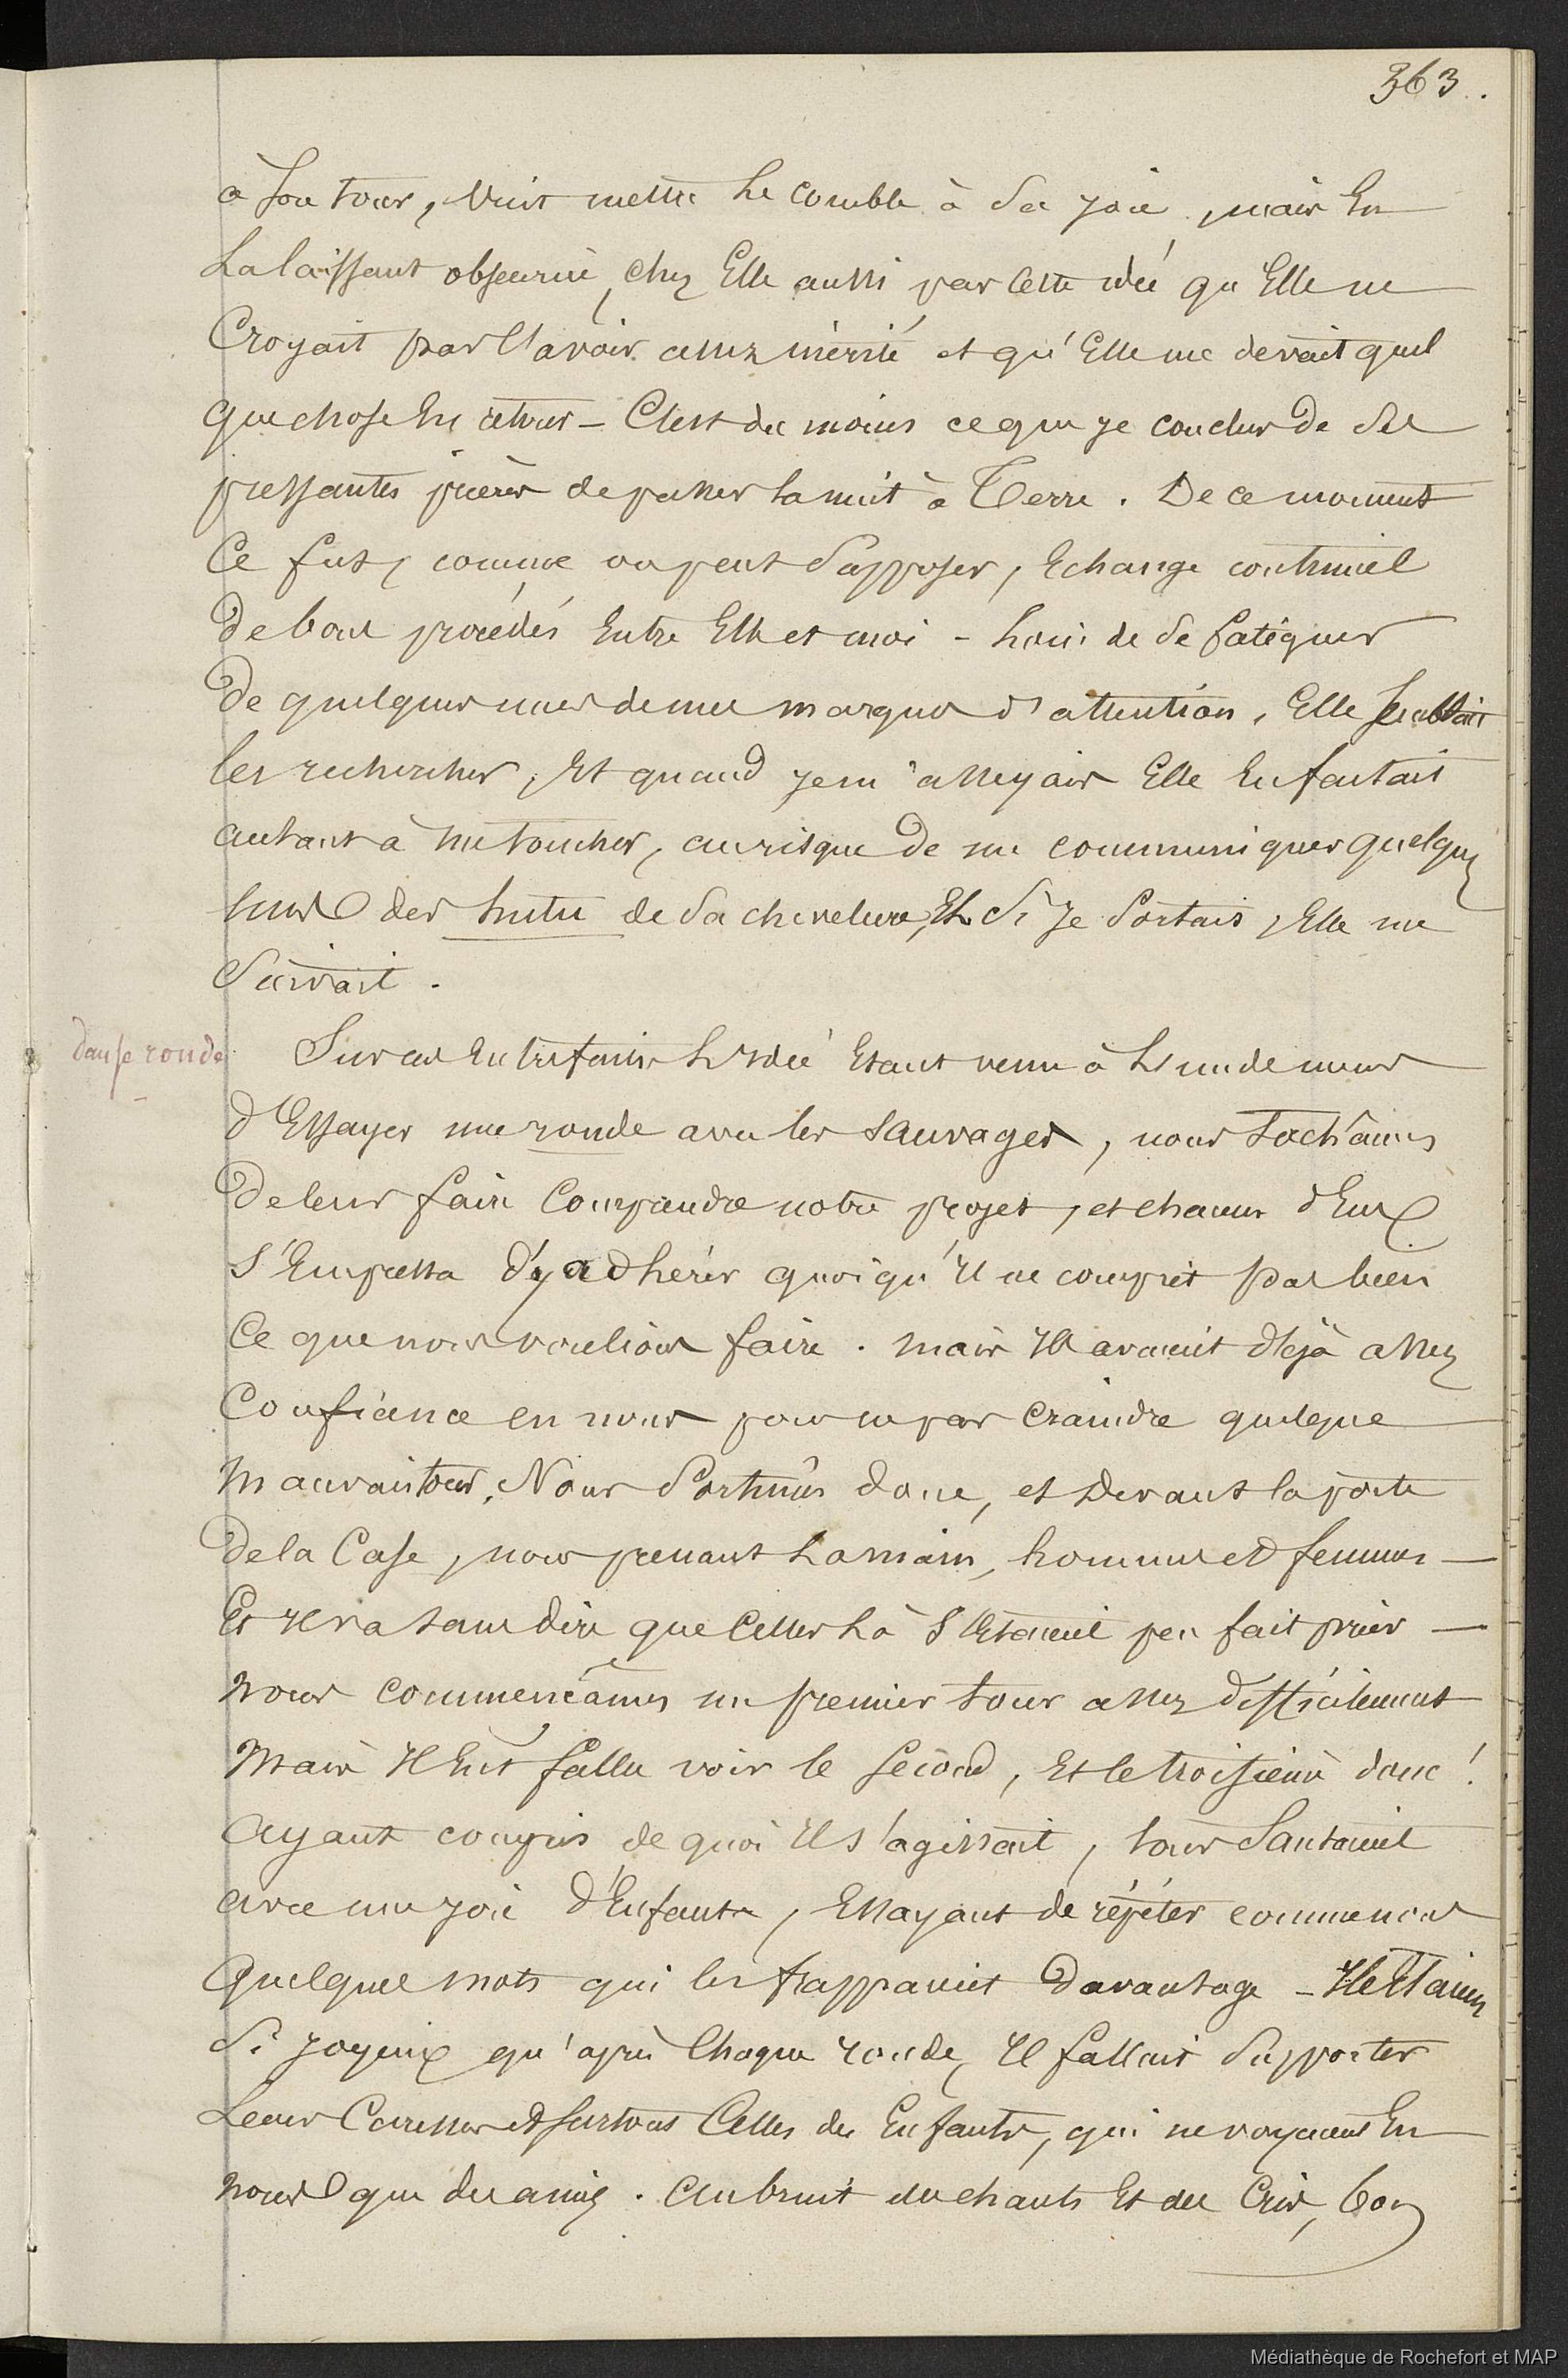 363.
à son tour, vint mettre le comble à sa joie, mais En
La laissant obscurcie, chez Elle aussi, par cette idée qu'Elle ne
Croyait pas l'avoir assez mérité et qu'Elle me devait quel
que chose En retour – C'est du moins ce que je conclus de ses
pressantes prières de passer la nuit à Terre. De ce moment
Ce fut, comme on peut supposer, Echange continuel
De bons procédés Entre Elle et moi – Loin de se fatiguer
De quelques unes de mes marques d'attention, Elle semblait
les rechercher, Et quand je m'asseyais Elle En faisait
autant à me toucher, au risque de me communiquer quelques
uns des de sa chevelure, Et si Je sortais, Elle me
Suivait.
danse ronde
Sur ces Entrefaites L'Idée Etant venue à L'un de nous
d'Essayer une ronde avec les Sauvages, nous tachâmes
De leur faire Comprendre notre projet, et chacun d'Eux
S'Empressa d'y adhérer quoiqu'Il ne comprit pas bien
Ce que nous voulions faire. Mais Ils avaient déjà assez
Confiance en nous pour ne pas craindre quelque
Mauvais tour. Nous Sortimes donc, et Devant la porte
De la Case, nous prenant La main, hommes et femmes –
Et Il va sans dire que Celles Là S'Etaient peu fait prier –
Nous commençâmes un premier tour assez difficilement
Mais Il Eut fallu voir le Second, Et le troisième donc!
Ayant compris de quoi Il s'agissait, tous Sautaient
avec une joie d'Enfants, Essayant de répéter comme nous
Quelques mots qui les frappaient Davantage – Ils Etaient
Si Joyeux qu'après Chaque ronde, Il fallait Supporter
Leurs Caresses et surtout Celles des Enfants, qui ne voyaient En
nous que des amis. Au bruit des chants Et des Cris, bon
Médiathèque de Rochefort et MAP